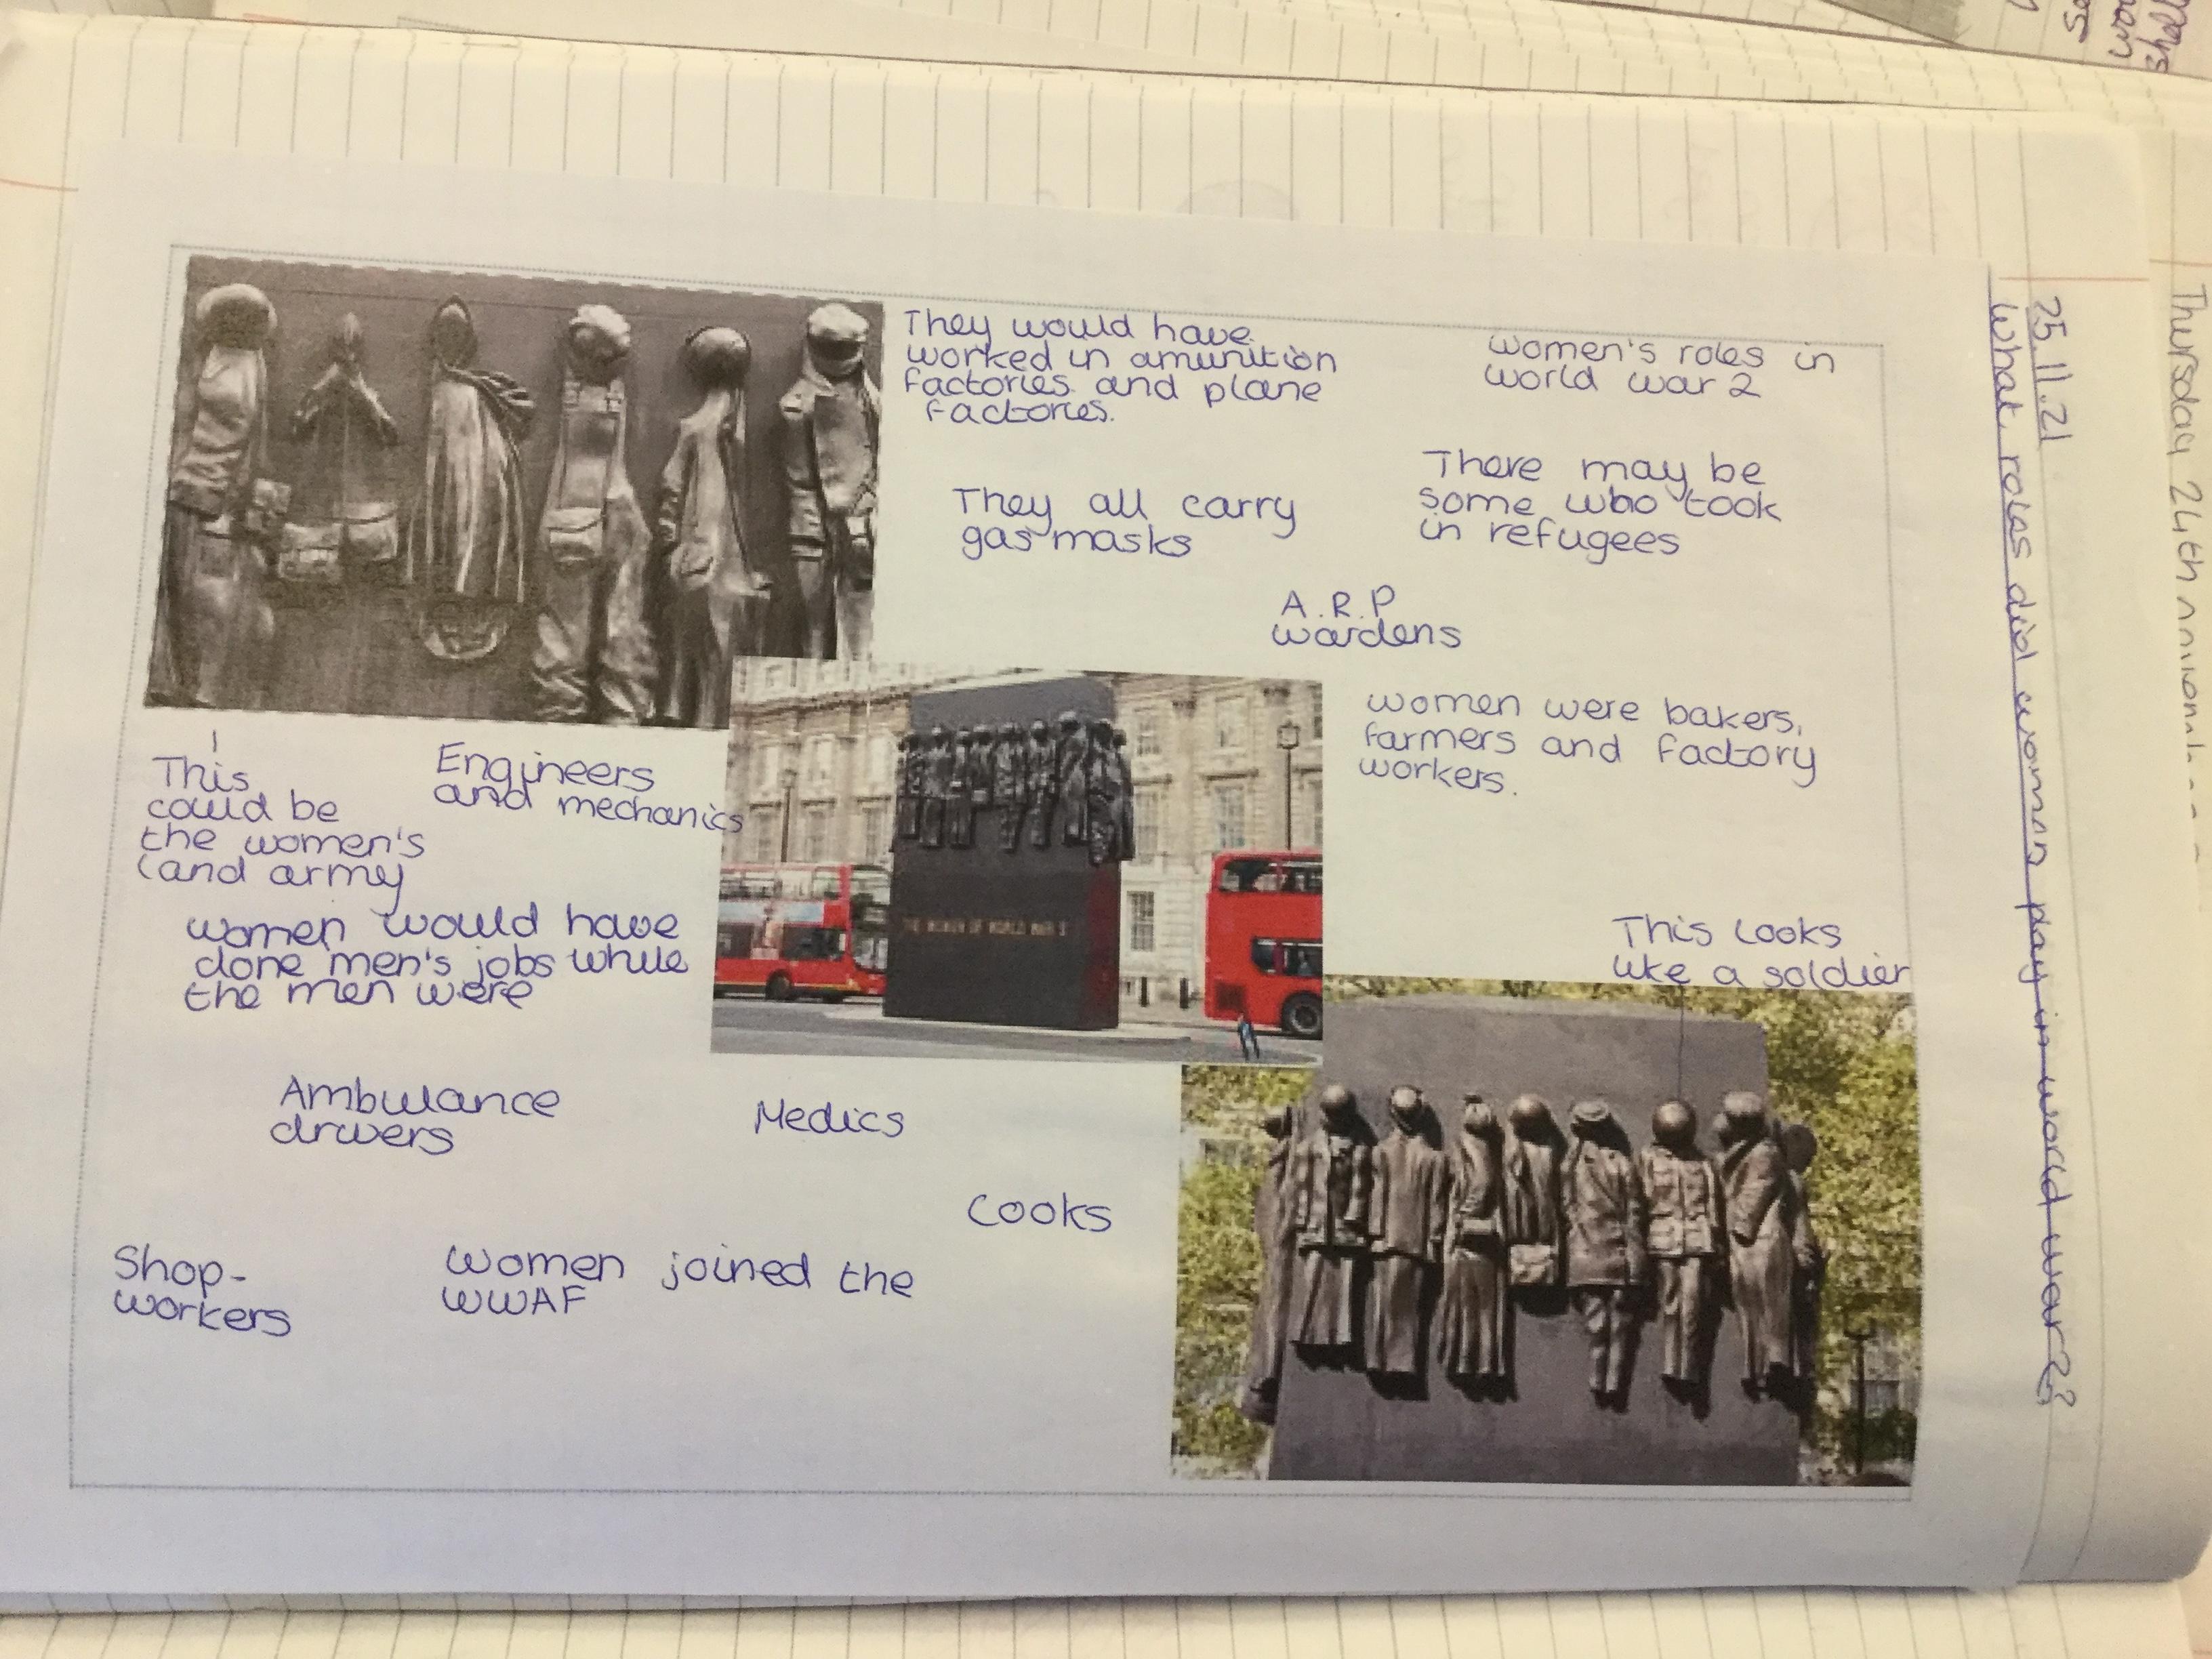 25.11.21
What roles did women play in world war 2?
They would have
worked in amunition
factories and plane
factories.
women's roles in
world war 2
They all carry
gas masks
There may be
some who took
in refugees
A.R.P
wardens
women were bakers,
farmers and factory
workers.
This
could be
the women's
land army
Engineers
and mechanics
women would have
done men's jobs while
the men were
THE WOMEN OF WORLD WAR II
This looks
like a soldier
Ambulance
drivers
Medics
Cooks
Shop-
workers
Women joined the
WWAF
Thursday 24th